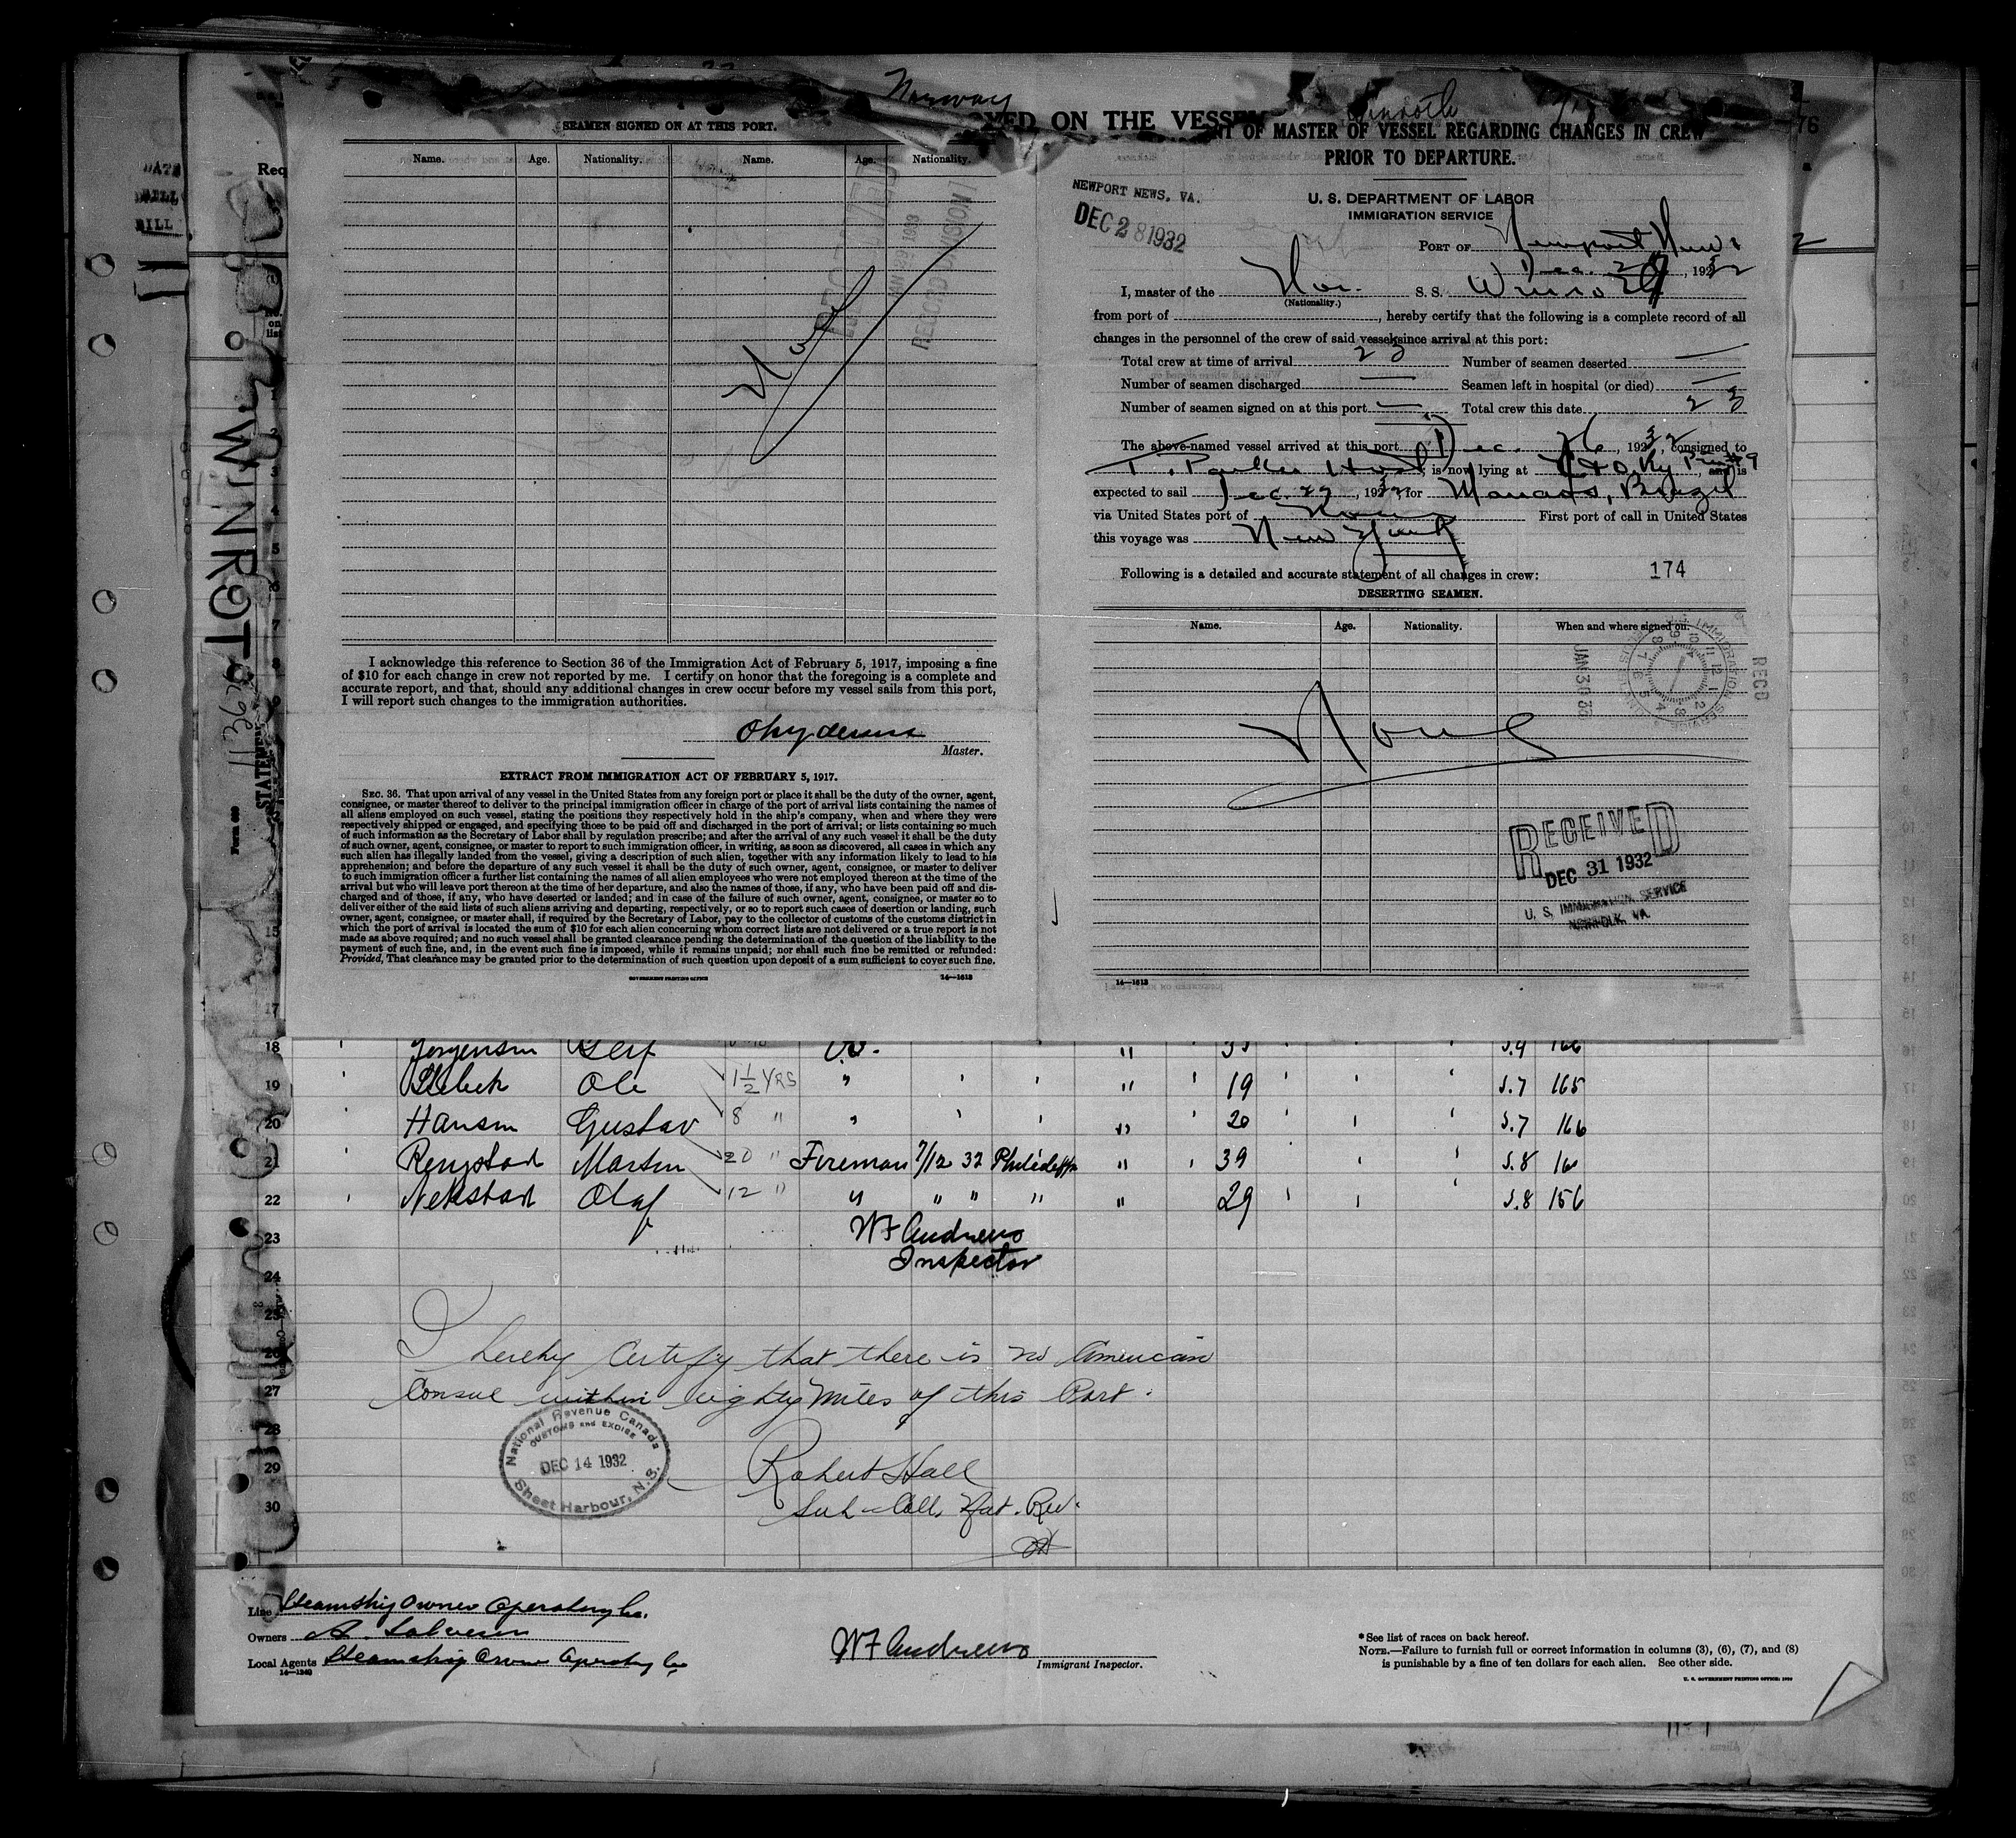 Norway
YED ON THE VESSE
SEAMEN SIGNED ON AT THIS PORT.
Name. Age. Nationality. Name. Age. Nationality.
I acknowledge this reference to Section 36 of the Immigration Act of February 5, 1917, imposing a fine
of $10 for each change in crew not reported by me. I certify on honor that the foregoing is a complete and
accurate report, and that, should any additional changes in crew occur before my vessel sails from this port,
I will report such changes to the immigration authorities.
Master.
EXTRACT FROM IMMIGRATION ACT OF FEBRUARY 5, 1917.
SEC. 36. That upon arrival of any vessel in the United States from any foreign port or place it shall be the duty of the owner, agent,
consignee, or master thereof to deliver to the principal immigration officer in charge of the port of arrival lists containing the names of
all aliens employed on such vessel, stating the positions they respectively hold in the ship's company, when and where they were
respectively shipped or engaged, and specifying those to be paid off and discharged in the port of arrival; or lists containing so much
of such information as the Secretary of Labor shall by regulation prescribe; and after the arrival of any such vessel it shall be the duty
of such owner, agent, consignee, or master to report to such immigration officer, in writing, as soon as discovered, all cases in which any
such alien has illegally landed from the vessel, giving a description of such alien, together with any information likely to lead to his
apprehension; and before the departure of any such vessel it shall be the duty of such owner, agent, consignee, or master to deliver
to such immigration officer a further list containing the names of all alien employees who were not employed thereon at the time of the
arrival but who will leave port thereon at the time of her departure, and also the names of those, if any, who have been paid off and dis-
charged and of those, if any, who have deserted or landed; and in case of the failure of such owner, agent, consignee, or master so to
deliver either of the said lists of such aliens arriving and departing, respectively, or so to report such cases of desertion or landing, such
owner, agent, consignee, or master shall, if required by the Secretary of Labor, pay to the collector of customs of the customs district in
which the port of arrival is located the sum of $10 for each alien concerning whom correct lists are not delivered or a true report is not
made as above required; and no such vessel shall be granted clearance pending the determination of the question of the liability to the
payment of such fine, and, in the event such fine is imposed, while it remains unpaid; nor shall such fine be remitted or refunded:
Provided, That clearance may be granted prior to the determination of such question upon deposit of a sum sufficient to cover such fine.
GOVERNMENT PRINTING OFFICE 14—1613
NT OF MASTER OF VESSEL REGARDING CHANGES IN CREW
PRIOR TO DEPARTURE.
NEWPORT NEWS, VA.
DEC 28 1932
U. S. DEPARTMENT OF LABOR
IMMIGRATION SERVICE
PORT OF Newport News
Dec. 1932
I, master of the Nor. S. S.
(Nationality.)
from port of , hereby certify that the following is a complete record of all
changes in the personnel of the crew of said vessel since arrival at this port:
Total crew at time of arrival 23 Number of seamen deserted —
Number of seamen discharged — Seamen left in hospital (or died) —
Number of seamen signed on at this port — Total crew this date 23
The above-named vessel arrived at this port Dec. 26, 1932, consigned to
T. Parker Host, is now lying at , and is
expected to sail Dec. 29, 1932, for Manaos, Brazil
via United States port of First port of call in United States
this voyage was New York
Following is a detailed and accurate statement of all changes in crew: 174
DESERTING SEAMEN.
Name. Age. Nationality. When and where signed on.
None
JAN 30 33
RECD
RECEIVED
DEC 31 1932
U. S. IMMIGRATION SERVICE
NORFOLK, VA.
14—1613
WINROTH
STATEMENT
18 Jorgensen Leif
19 Ole 1½ YRS " " 19 5.7 165
20 Hansen Gustav 8 " " " 20 5.7 166
21 Martin 20 " Fireman 7/12 32 " 39 5.8
22 Olaf 12 " " " " " " 29 5.8 156
23 WF Andrews
Inspector
24
25
26 I hereby Certify that there is no American
27 Consul within eighty miles of this Port.
28
National Revenue Canada
CUSTOMS and EXCISE
DEC 14 1932
Sheet Harbour, N.S.
29 Robert Hall
30 Sub-Coll. Nat. Rev.
Line Steamship Owner Operating Co.
Owners A. Salvesen
Local Agents Steamship Owner Operating Co
14—1240
WF Andrews
Immigrant Inspector.
* See list of races on back hereof.
NOTE.—Failure to furnish full or correct information in columns (3), (6), (7), and (8)
is punishable by a fine of ten dollars for each alien. See other side.
U. S. GOVERNMENT PRINTING OFFICE: 1930